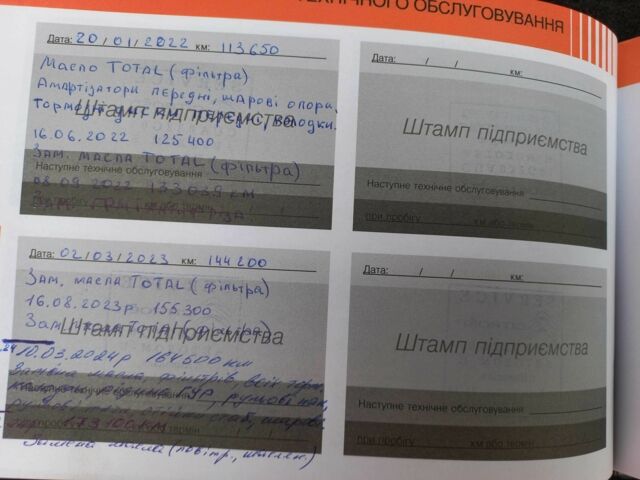 ТЕХНІЧНОГО ОБСЛУГОВУВАННЯ
Дата: 20 / 01 / 2022 км: 113650
Масло TOTAL (фільтра)
Амартізатори передні, шарові опори.
Тормозні диски передні, колодки.
Штамп підприємства
16.06.2022 125400
Зам. масла TOTAL (фільтра)
Наступне технічне обслуговування
08.09.2022 133039 км
Зам.
Дата: / / км:
Штамп підприємства
Наступне технічне обслуговування
при пробігу км або термін
Дата: 02/03/2023 км: 144200
Зам. масла TOTAL (фільтра)
16.08.2023р 155300
Зам. масла TOTAL (фільтра)
Штамп підприємства
10.03.2024р 164500 км
Заміна масла, фільтрів, всіх
ГУР, рульові
173100 км
Заміна масла (повітр.,
Дата: / / км:
Штамп підприємства
Наступне технічне обслуговування
при пробігу км або термін